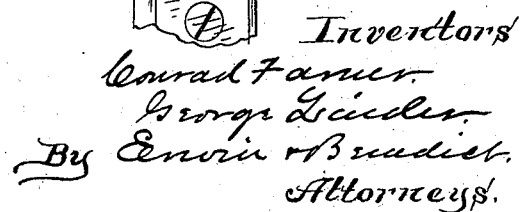 Inventors
Conrad Farner.
George Linder.
By Erwin & Benedict.
Attorneys.